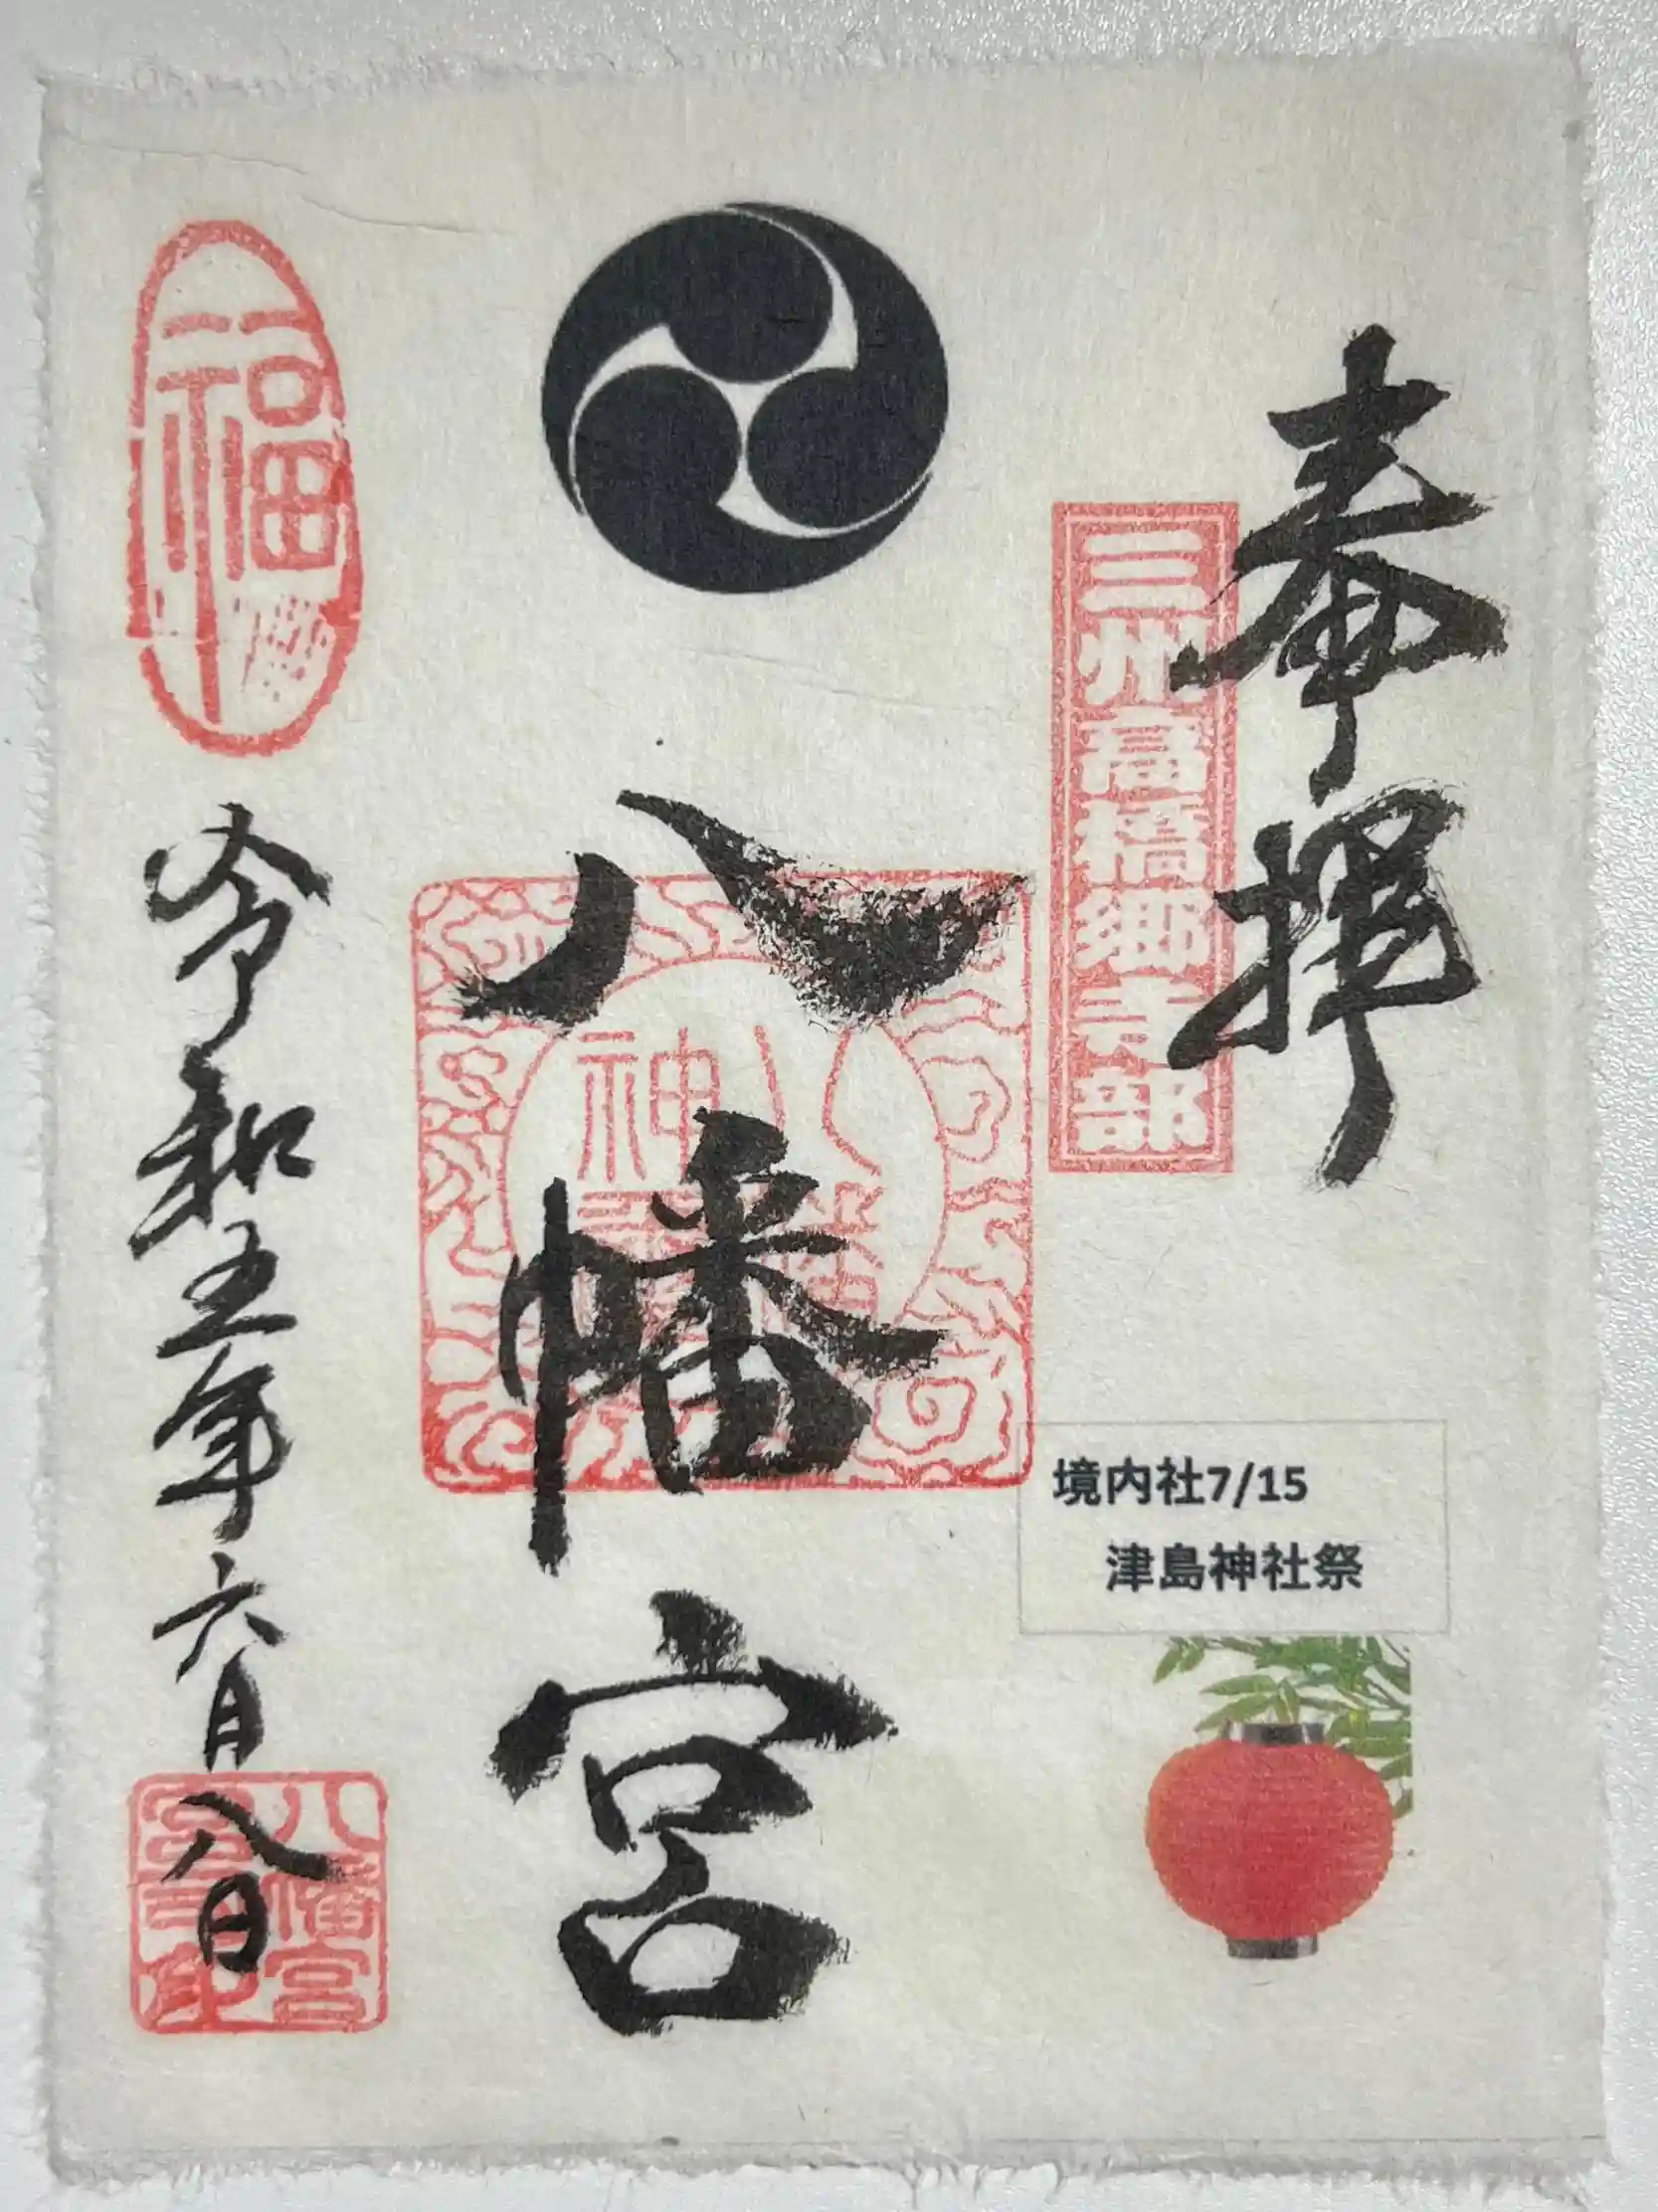 奉拝
三州高橋郷寺部
八幡宮
境内社7/15
津島神社祭
福
令和五年六月八日
八幡宮